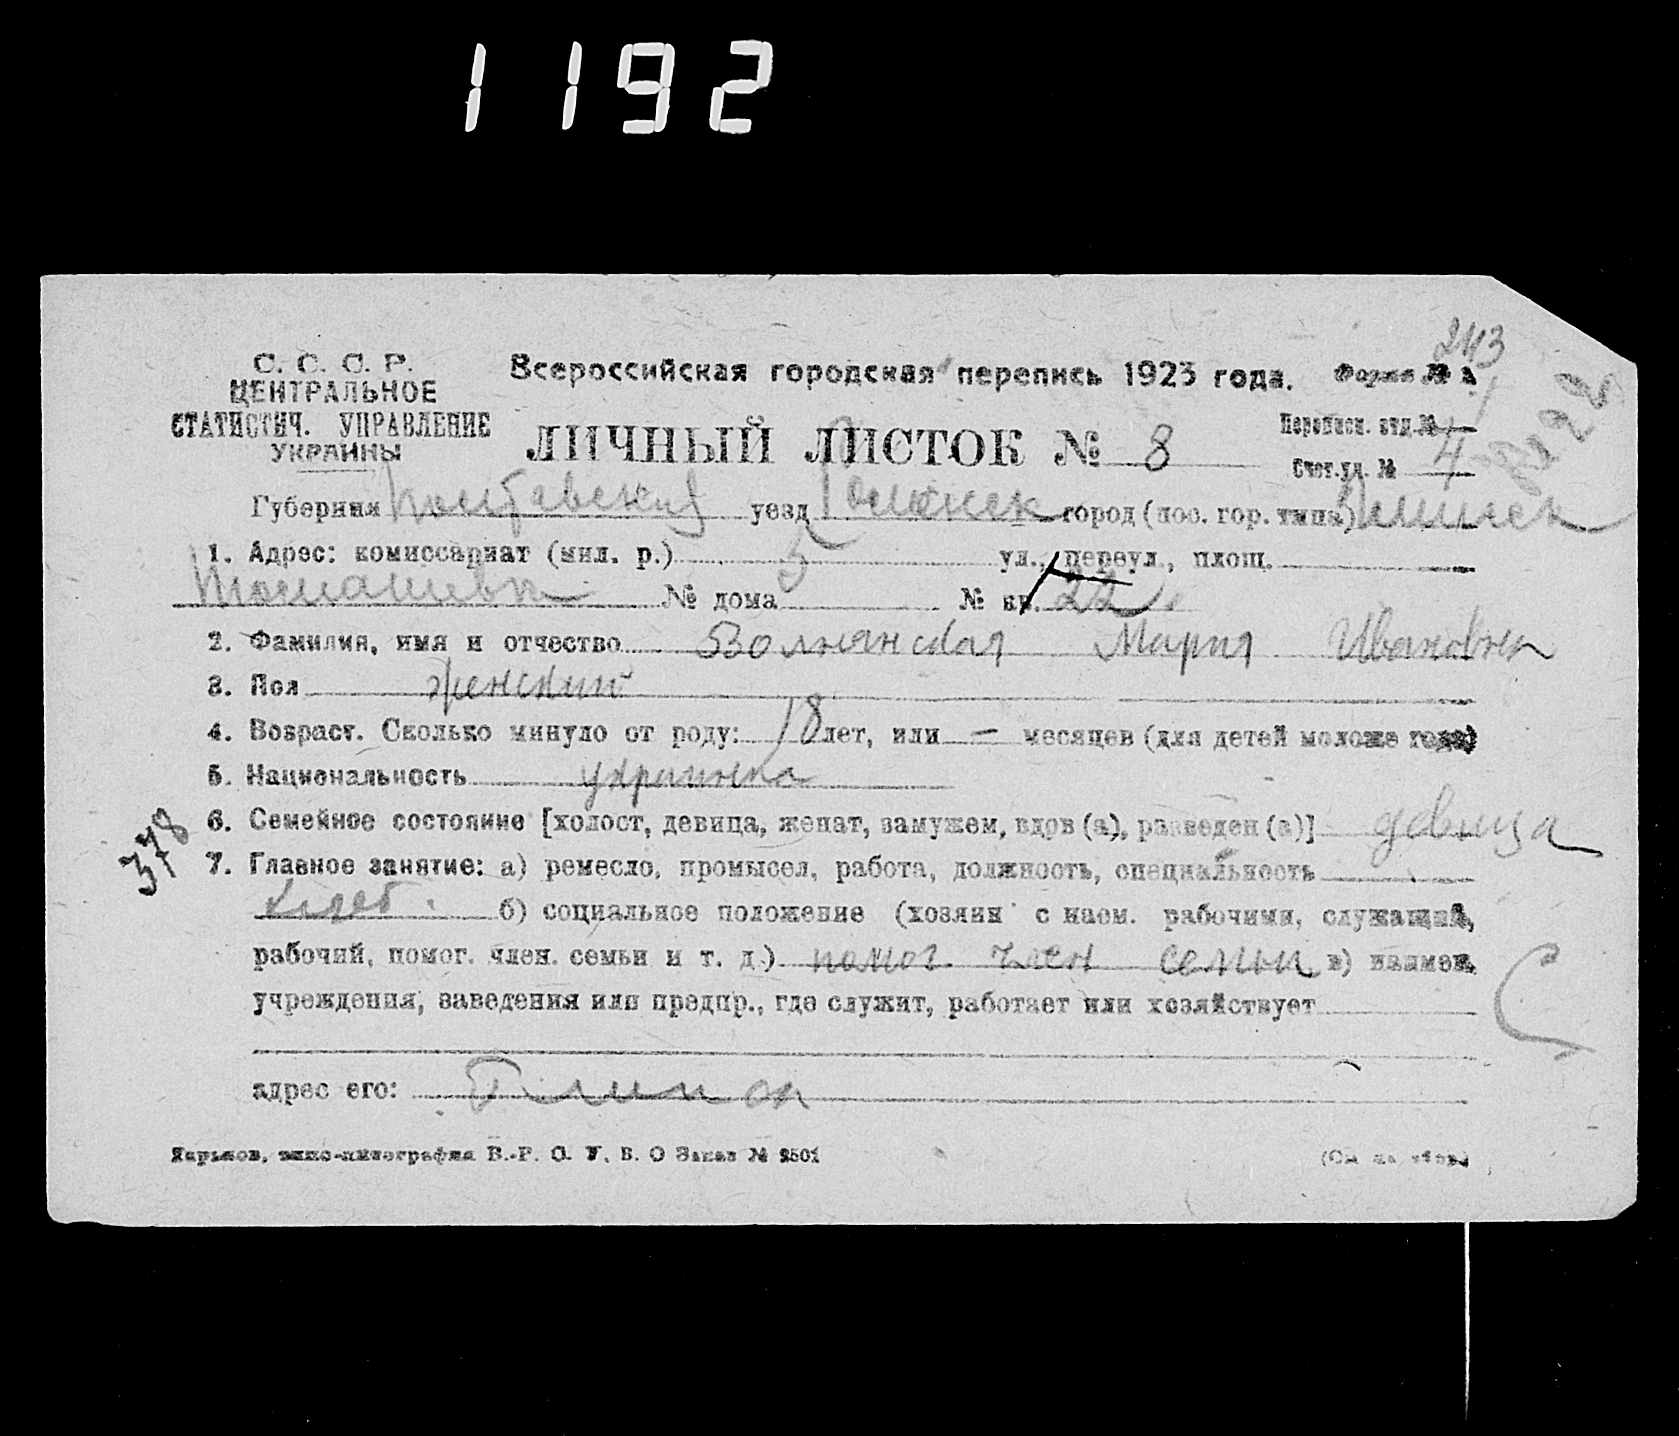 1192
243
С. С. С. Р.
ЦЕНТРАЛЬНОЕ
СТАТИСТИЧ. УПРАВЛЕНИЕ
УКРАИНЫ
Всероссийская городская перепись 1923 года. Форма № А.
ЛИЧНЫЙ ЛИСТОК № 8
Перепис. отд. №
Счет. уд. № 4
Губерния Полтавская уезд город (пос. гор. типа)
1. Адрес: комиссариат (мил. р.) 5 ул., переул., площ.
№ дома № кв. 22
2. Фамилия, имя и отчество Волнянская Мария Ивановна
3. Пол женский
4. Возраст. Сколько минуло от роду: 18 лет, или — месяцев (для детей моложе года)
5. Национальность украинка
378
6. Семейное состояние [холост, девица, женат, замужем, вдов (а), разведен (а)] девица
7. Главное занятие: а) ремесло, промысел, работа, должность, специальность
хлеб. б) социальное положение (хозяин с наем. рабочими, служащий,
рабочий, помог. член. семьи и т. д.) помог. член семьи в) наимен.
учреждения, заведения или предпр., где служит, работает или хозяйствует
адрес его:
Харьков, типо-литография В.-Р. О. У. В. О Заказ № 2501
(См. на обор.)